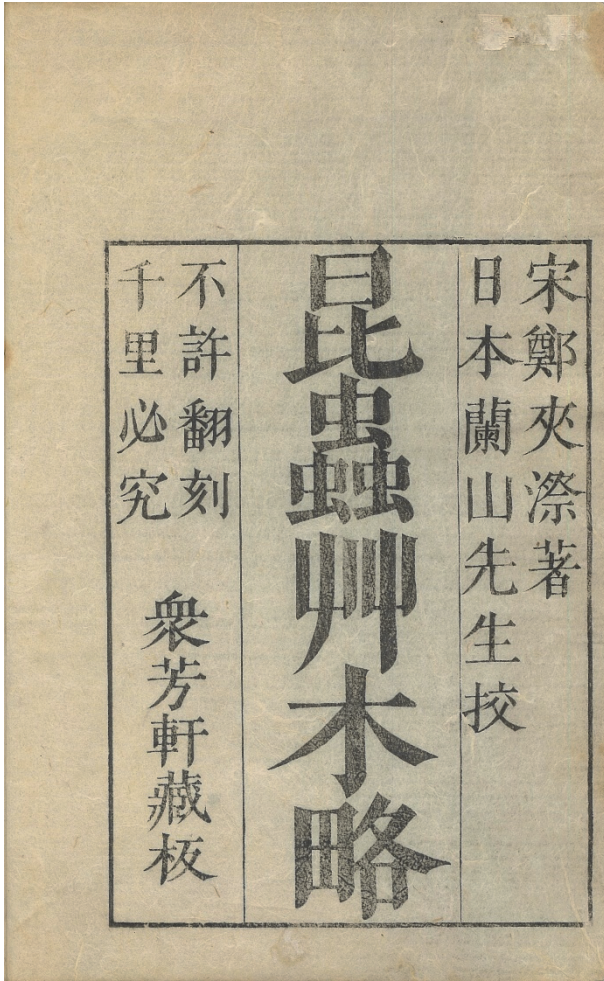 宋鄭夾漈著
日本蘭山先生挍
昆蟲艸木略
不許翻刻
千里必究
衆芳軒藏板